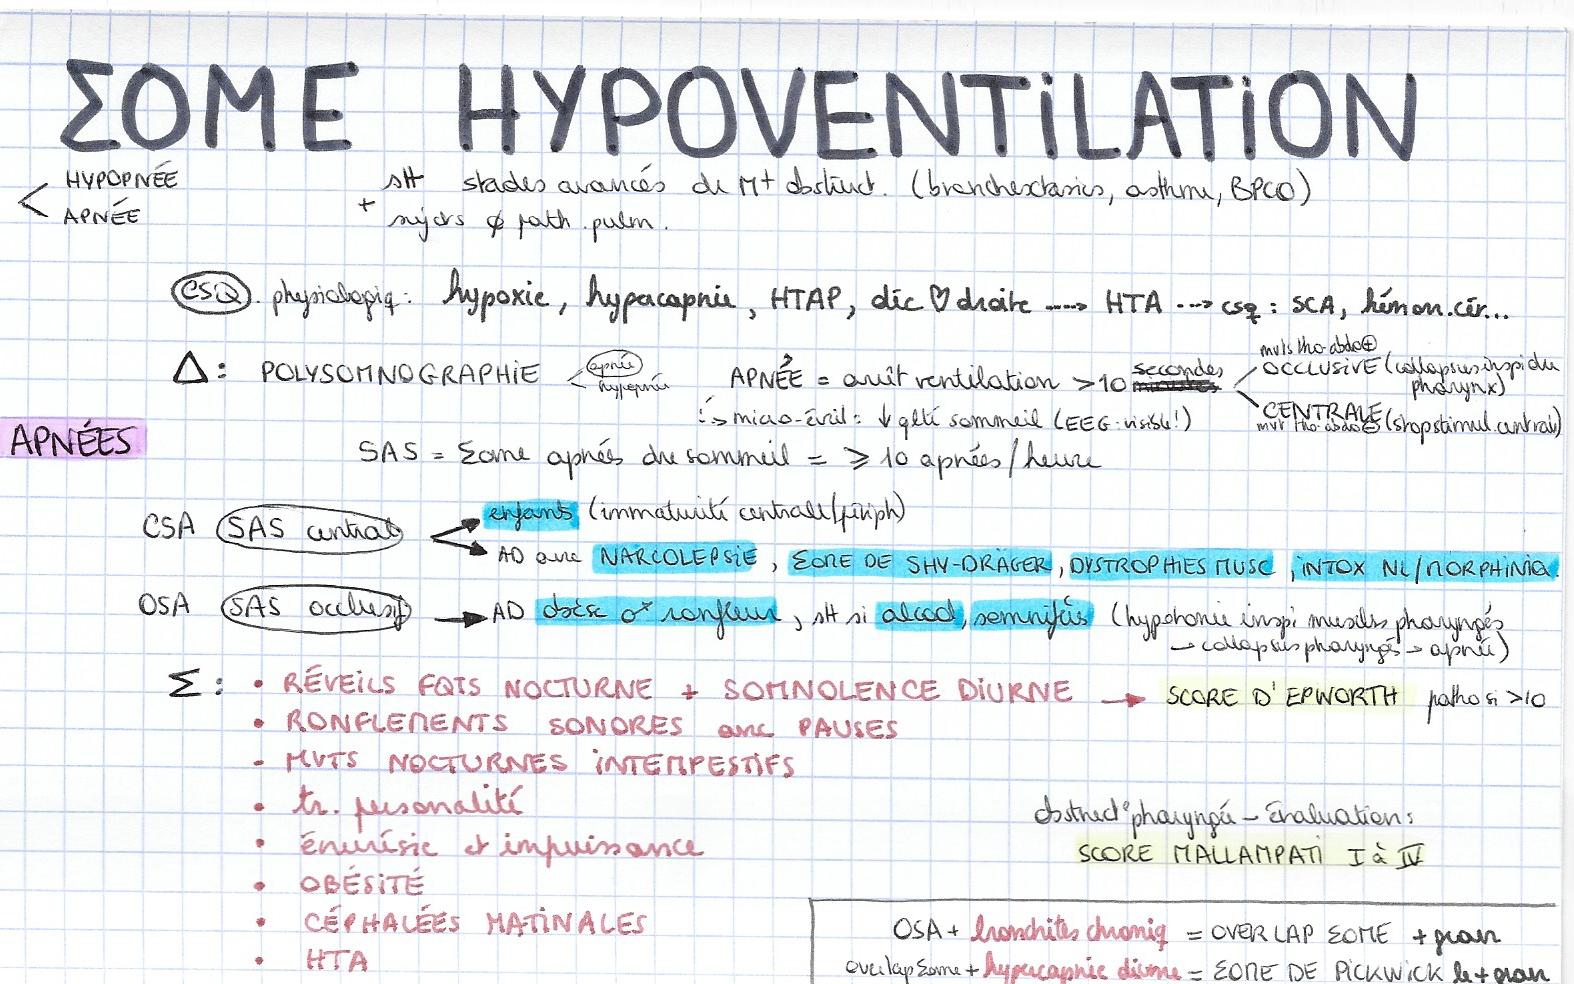 ΣOME HYPOVENTiLATiON
HYPOPNÉE
APNÉE
stt stades avancés de M+ obstruct. (bronchectasies, asthme, BPCO)
+ sujets ∅ path. pulm.
CSQ. physiologiq: hypoxie, hypercapnie, HTAP, déc ♡ droite ----> HTA ---> csq: SCA, hémorr. cér...
Δ: POLYSOMNOGRAPHiE
apnée
hypopnée
APNÉE = arrêt ventilation >10 secondes
mvts tho-abdo ⊕
OCCLUSIVE (collapsus inspi du pharynx)
CENTRALE (stop stimul. central)
mvt tho-abdo ⊖
↳ micro-éveil: ↓ qlté sommeil (EEG-visible!)
APNÉES
SAS = Σome apnées du sommeil = ⩾ 10 apnées/heure
CSA SAS central
enfants (immaturité centrale/périph)
AD avec NARCOLEPSiE, ΣOME DE SHY-DRAGER, DYSTROPHIES MUSC, iNTOX NL/MORPHINIQ.
OSA SAS occlusif → AD obèse ♂ ronfleur, stt si alcool, somnifères (hypotonie inspi muscles pharyngés
→ collapsus pharyngés → apnée)
Σ: • RÉVEiLS FQTS NOCTURNE + SOMNOLENCE DiURNE → SCORE D'EPWORTH patho si >10
• RONFLEMENTS SONORES avec PAUSES
- MVTS NOCTURNES iNTEMPESTiFS
• tr. personalité
• énurésie et impuissance
• OBÉSiTÉ
• CÉPHALÉES MATiNALES
• HTA
obstruct° pharyngée - Évaluation:
SCORE MALLAMPATi I à IV
OSA + bronchites chroniq = OVERLAP ΣOME + grave
overlap Σome + hypercapnie diurne = ΣOME DE PiCKWiCK le + grave